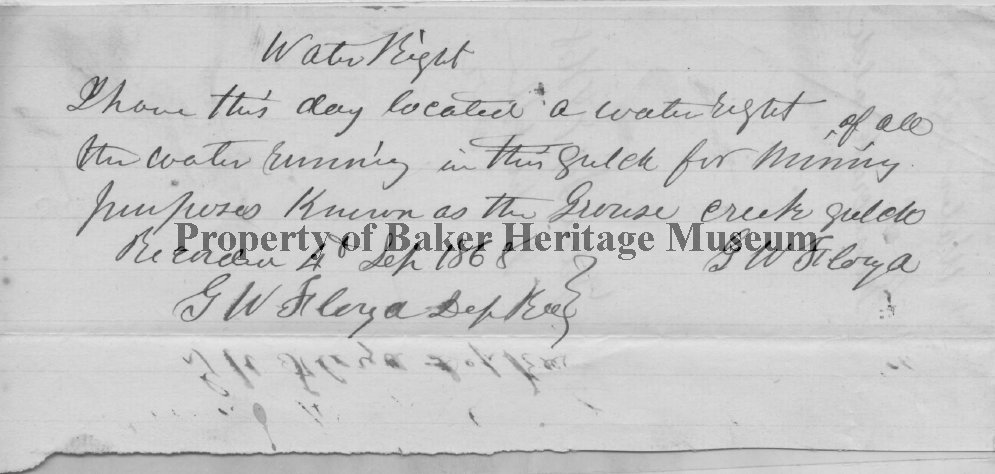 Water Right
I have this day located a water right of all
the water running in this gulch for Mining
purposes Known as the Grouse creek gulch
Property of Baker Heritage Museum
Recorded 4d Sep 1868 G W Floyd
G W Floyd Dep Rec